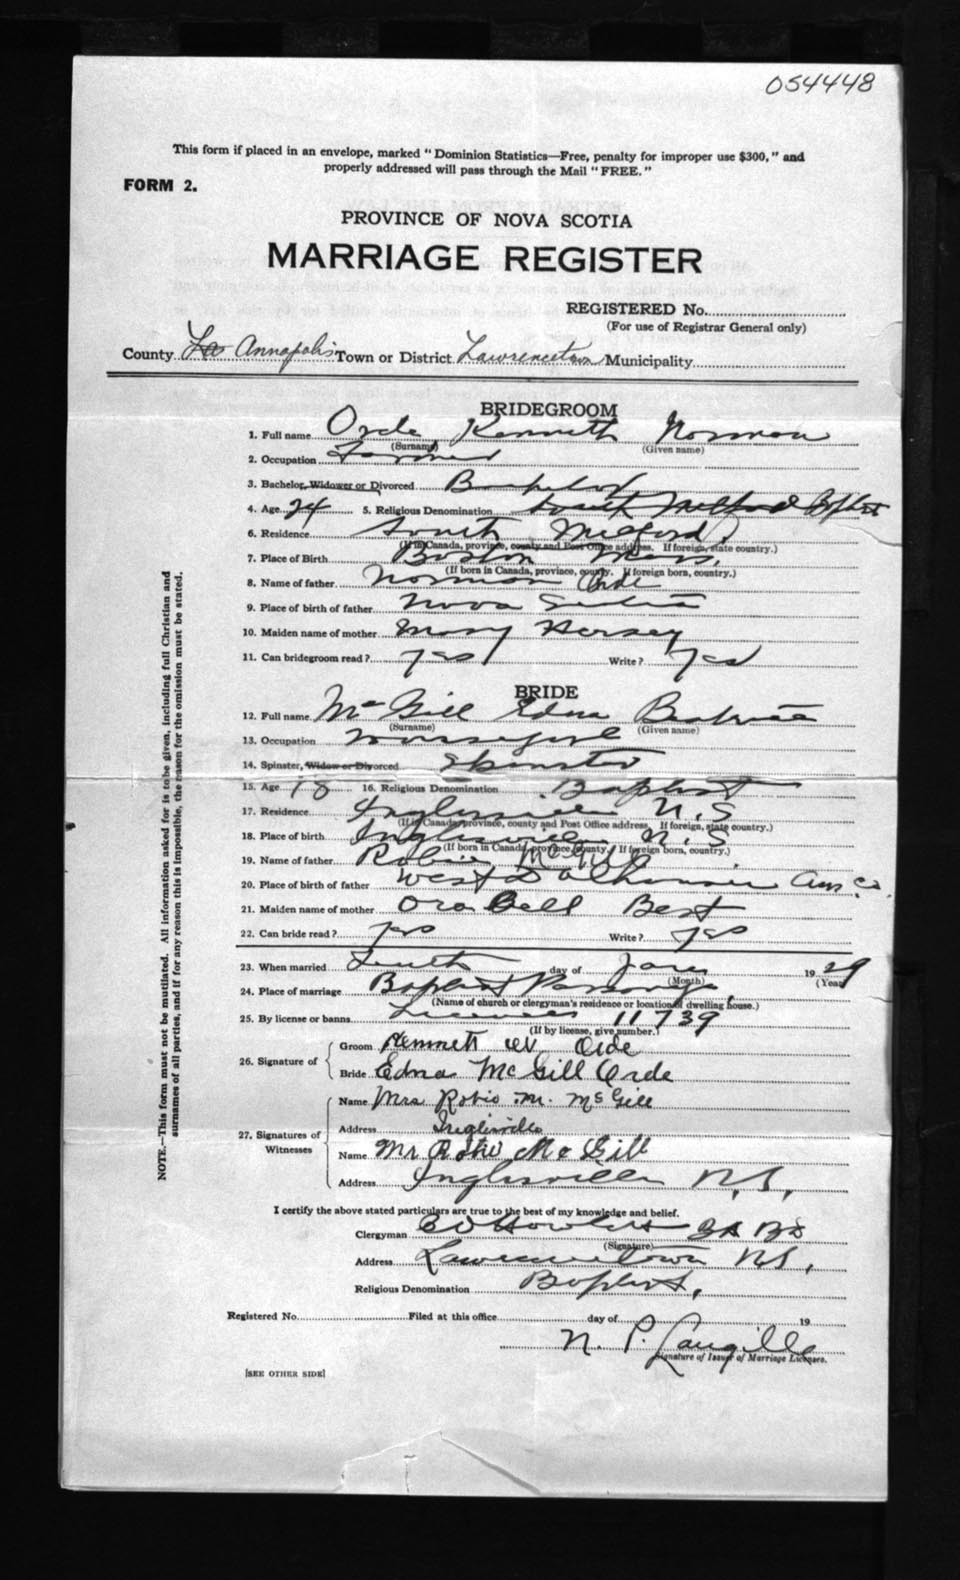 054448
This form if placed in an envelope, marked "Dominion Statistics—Free, penalty for improper use $300," and
properly addressed will pass through the Mail "FREE."
FORM 2.
PROVINCE OF NOVA SCOTIA
MARRIAGE REGISTER
REGISTERED No.
(For use of Registrar General only)
County Annapolis Town or District Lawrencetown Municipality
BRIDEGROOM
1. Full name Orde Kenneth Norman
(Surname) (Given name)
2. Occupation Farmer
3. Bachelor, Widower or Divorced Bachelor
4. Age 24 5. Religious Denomination South Milford Baptist
6. Residence South Milford
(If in Canada, province, county and Post Office address. If foreign, state country.)
7. Place of Birth Boston Mass.
(If born in Canada, province, county. If foreign born, country.)
8. Name of father Norman Orde
9. Place of birth of father Nova Scotia
10. Maiden name of mother Mary Hersey
11. Can bridegroom read? yes Write? yes
BRIDE
12. Full name McGill Edna Beatrice
(Surname) (Given name)
13. Occupation
14. Spinster, Widow or Divorced Spinster
15. Age 18 16. Religious Denomination Baptist
17. Residence Inglisville N.S
(If in Canada, province, county and Post Office address. If foreign, state country.)
18. Place of birth Inglisville N.S
(If born in Canada, province, county. If foreign born, country.)
19. Name of father Robie McGill
20. Place of birth of father West Dalhousie Ann Co.
21. Maiden name of mother Ora Bell Best
22. Can bride read? yes Write? yes
23. When married Tenth day of Jany 1929
(Month) (Year)
24. Place of marriage Baptist Parsonage,
(Name of church or clergyman's residence or location of dwelling house.)
25. By license or banns License 11739
(If by license, give number.)
26. Signature of
Groom Kenneth W. Orde
Bride Edna McGill Orde
27. Signatures of Witnesses
Name Mrs Robie M. McGill
Address Inglisville
Name Mr Robie McGill
Address Inglisville N.S,
I certify the above stated particulars are true to the best of my knowledge and belief.
Clergyman
(Signature)
Address Lawrencetown N.S,
Religious Denomination Baptist,
Registered No. Filed at this office day of 19
N. P. Langille
Signature of Issuer of Marriage Licenses.
[SEE OTHER SIDE]
NOTE.—This form must not be mutilated. All information asked for is to be given, including full Christian and
surnames of all parties, and if for any reason this is impossible, the reason for the omission must be stated.